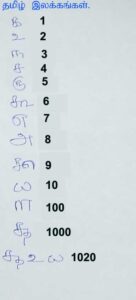 தமிழ் இலக்கங்கள்.
௧ 1
௨ 2
௩ 3
௪ 4
௫ 5
௬ 6
௭ 7
௮ 8
௯ 9
௰ 10
௱ 100
௲ 1000
௲ ௨ ௰ 1020